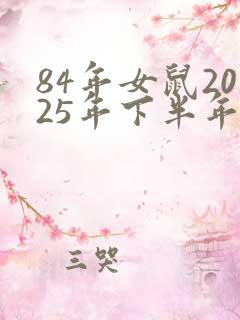 84年女鼠20
25年下半年
三哭